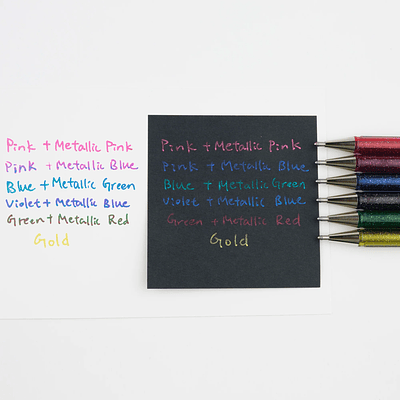 Pink + Metallic Pink
Pink + Metallic Blue
Blue + Metallic Green
Violet + Metallic Blue
Green + Metallic Red
Gold
Pink + Metallic Pink
Pink + Metallic Blue
Blue + Metallic Green
Violet + Metallic Blue
Green + Metallic Red
Gold